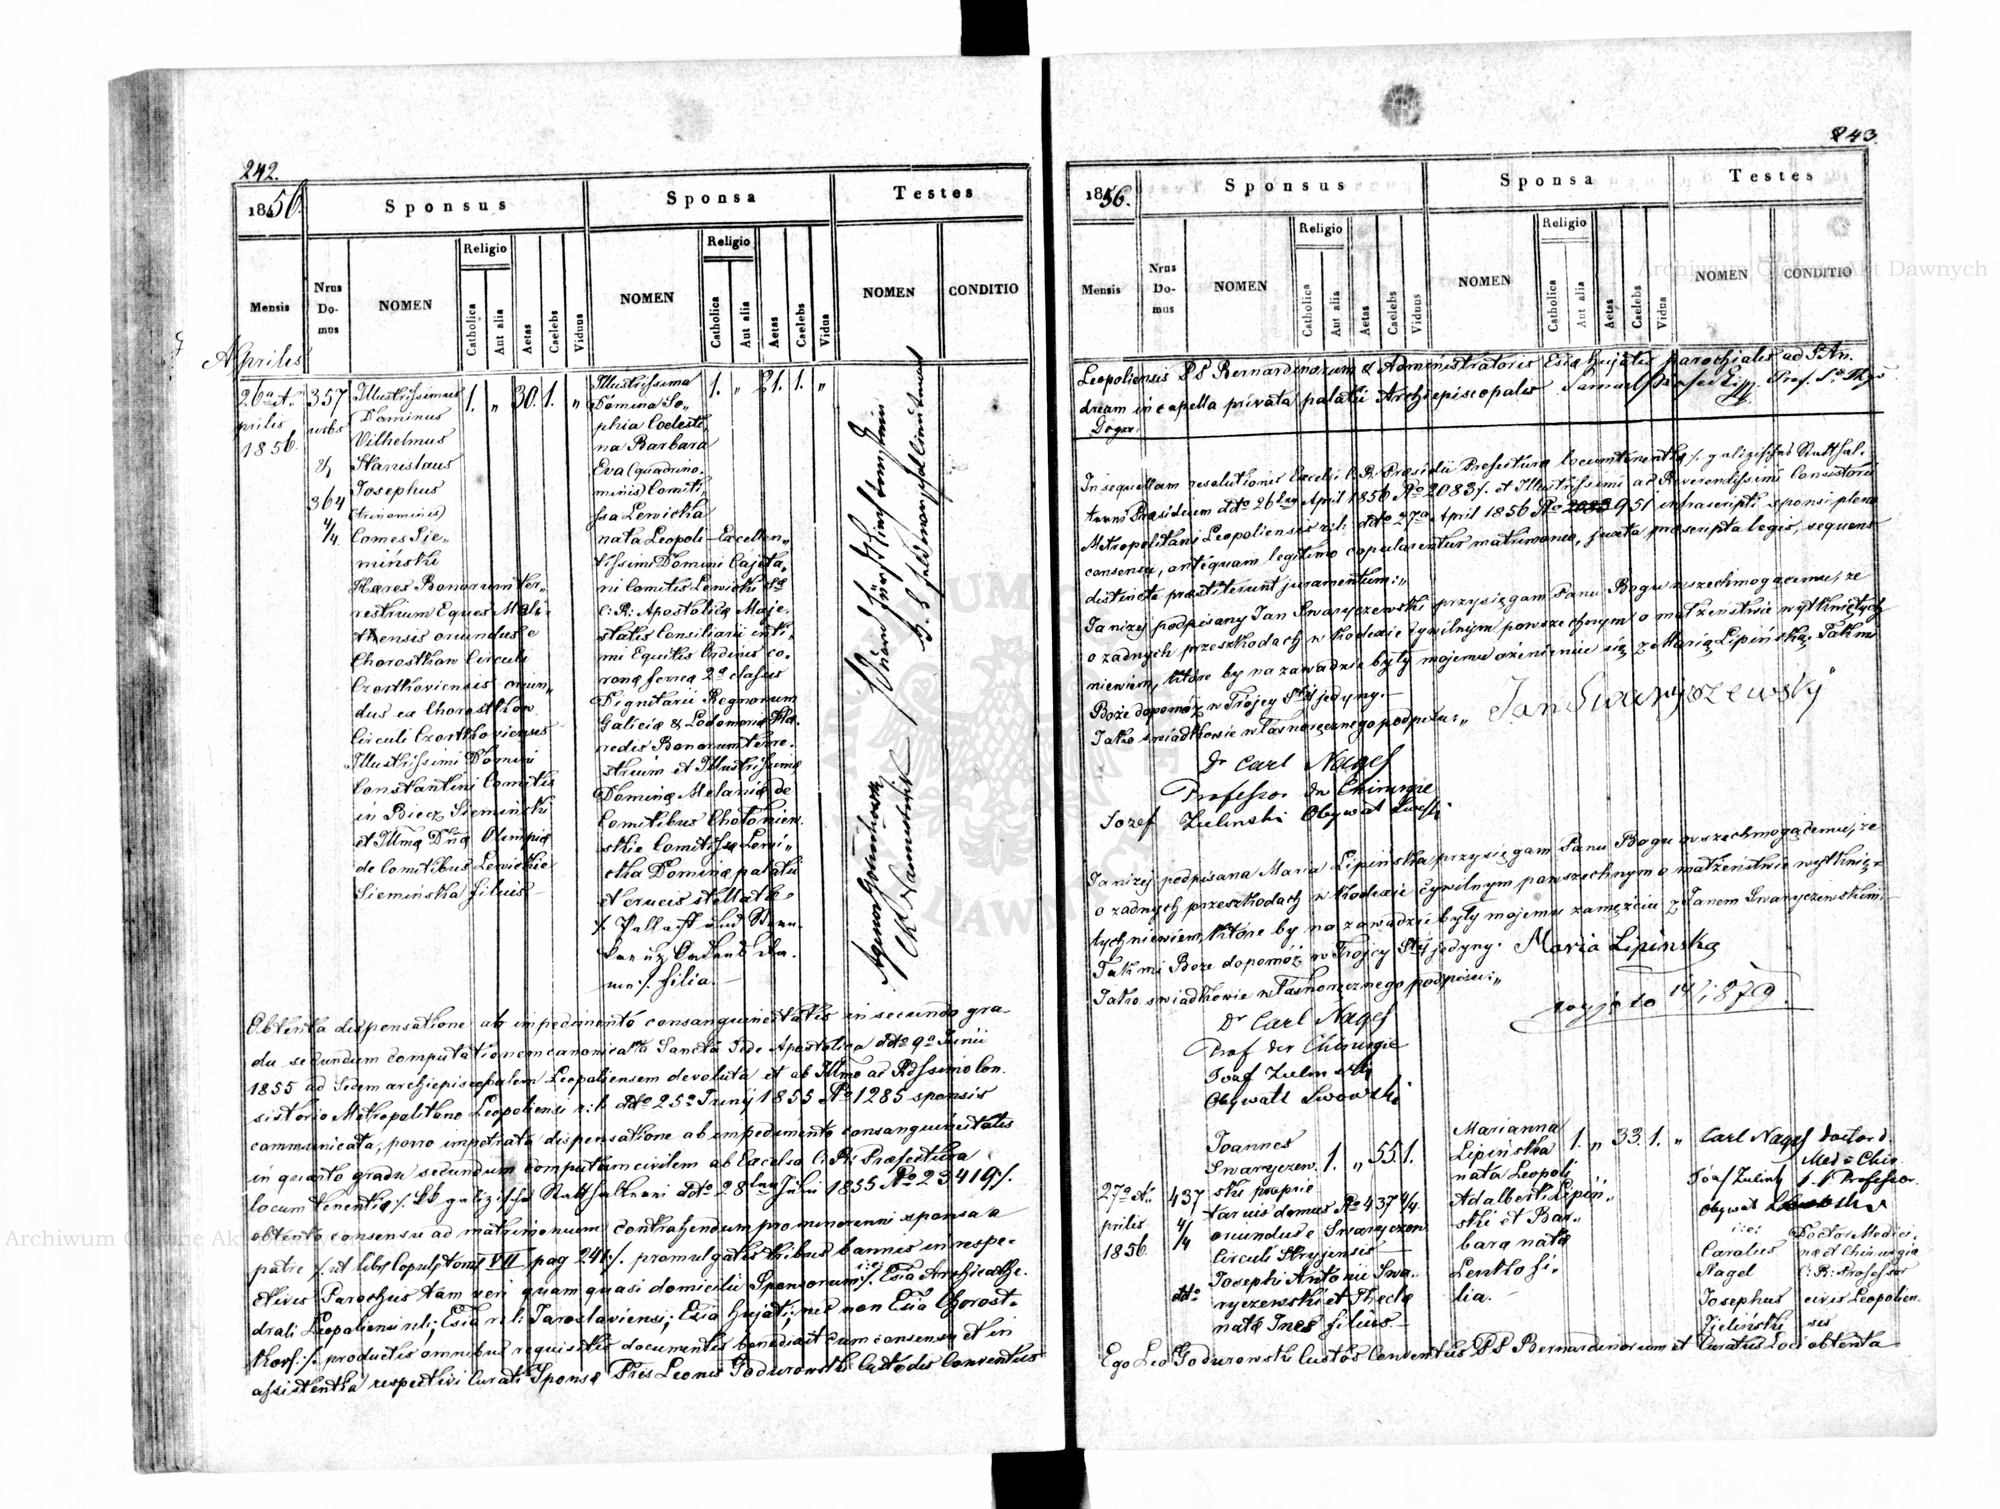 242.
1856.
Sponsus
Sponsa
Testes
Mensis
Nrus Do-mus
NOMEN
Religio
Catholica
Aut alia
Aetas
Caelebs
Viduus
NOMEN
Religio
Catholica
Aut alia
Aetas
Caelebs
Vidua
NOMEN
CONDITIO
Aprilis
26a A-
prilis
1856.
357
urbs
364
4/4
Illustrissimus
Dominus
Vilhelmus
Stanislaus
Josephus
(trinominis)
Comes Sie-
miński
Hæres Bonorum ter-
restrium Eques Meli-
thensis oriundus e
Chorostkow Circuli
Czortkoviensis oriun-
dus ex Chorostkow
Circuli Czortkoviensis
Illustrissimi Domini
Constantini Comitis
in Biecz Siemiński
et Illmæ Dnæ Olimpiæ
de Comitibus Lewickie
Siemińska filius
1. " 30. 1. "
Illustrissima
Domina So-
phia Coelesti-
na Barbara
Eva (quadrino-
minis) Comiti-
ssa Lewicka
nata Leopoli - Excellen-
tissimi Domini Cajeta-
ni Comitis Lewicki Sæ
C: R: Apostolicæ Maje-
statis Consiliarii inti-
mi Equitis Ordinis co-
ronæ ferreæ 2æ classis
Dignitarii Regnorum
Galiciæ & Lodomeriæ Hæ-
redis Bonorum terre-
strium et Illustrissimæ
Dominæ Melaniæ de
Comitibus Cholonien-
skie Comitissæ Lewi-
cka Dominæ palatii
et crucis stellatæ
/. Pallast und Stern-
kreuz Ordens Da-
me /. filia.
1. " 21. 1. "
Agenor Gołuchowski
ckr Namiestnik
Eduard Fürst Liechtenstein
k. k. feldmarschallieutenant
Obtenta dispensatione ab impedimento consanguineitatis in secundo gra-
du secundum computationem canonicam a Sancta Sede Apostolica ddto 9a Junii
1855 ad Sedem archiepiscopalem Leopoliensem devoluta et ab Illmo ac Rdssimo Con-
sistorio Metropolitano Leopoliensi r: l: ddto 25a Junij 1855 No 1285 sponsis
communicata, porro impetrata dispensatione ab impedimento consanguineitatis
in quarto gradu secundum computum civilem ab Excelsa C: R: Præfectura
locum tenentiæ /. kk galizische Statthalterei ddto 28 Julii 1855 No 23419/.
obtento consensu ad matrimonium contrahendum pro minorenni sponsa a
patre /. ut libr: Copul: Tom: VII pag 241/. promulgatis tribus bannis in respe-
ctivis Parochiis tam veri quam quasi domicilii Sponsorum /. i: e: Eccla Archicathe-
drali Leopoliensi r: l:; Eccla r: l: Jaroslaviensi; Eccla hujati; nec non Eccla Chorost-
kow: /. productis omnibus requisitis documentis benedixit cum consensu et in
assistentia respectivi Curati Sponsæ Pris Leonis Godurowski Custodis Conventus
243.
1856.
Sponsus
Sponsa
Testes
Mensis
Nrus Do-mus
NOMEN
Religio
Catholica
Aut alia
Aetas
Caelebs
Viduus
NOMEN
Religio
Catholica
Aut alia
Aetas
Caelebs
Vidua
NOMEN
CONDITIO
Leopoliensis PP Bernardinorum & Administratoris Ecclæ hujatis parochialis ad S. An-
dream in capella privata palatii Archiepiscopales Samuel Prof.
Dogm:
In sequellam resolutionis Excelsi C: R: Præsidii Præfecturæ locumtenentiæ /. galizisches Statthal-
terei Præsidium ddto 26 April 1856 No 2083/. et Illustrissimi ac Reverendissimi Consistorii
Metropolitani Leopoliensis r: l: ddto 27a April 1856 No 951 infrascripti sponsi pleno
consensu, antequam legitimo copularentur matrimonio, juxta præscripta legis, sequens
distincte præstiterunt juramentum:"
Ja niżej podpisany Jan Swaryczewski przysięgam Panu Bogu wszechmogącemu, że
o żadnych przeszkodach w Kodexie Cywilnym powszechnym o małżeństwie wytkniętych
niewiem, które by na zawadzie były mojemu ożenienie się z Marią Lipińską. Tak mi
Boże dopomóż w Trójcy Stej jedyny. —
Jako świadkowie własnoręcznego podpisu:"
Jan Swaryczewsky
Dr Carl Nagel
Professor der Chirurgie
Jozef Zielinski Obywat Lwoski
Ja niżej podpisana Maria Lipińska przysięgam Panu Bogu wszechmogącemu, że
o żadnych przeszkodach w Kodexie Cywilnym powszechnym o małżeństwie wytknię-
tych niewiem, które by na zawadzie były mojemu zamęściu z Janem Swaryczewskim.
Tak mi Boże dopomóż w Trójcy Stej jedyny.
Maria Lipinska
Jako świadkowie własnoręcznego podpisu:"
Dr Carl Nagel
Prof der Chirurgie
Jozef Zielinski
Obywatl Lwowski
27a A-
prilis
1856.
437
4/4
ddto
Joannes
Swaryczew-
ski proprie-
tarius domus No 437 4/4
oriundus e Swaryczew
Circuli Stryjensis
Josephi Antonii Swa-
ryczewski et Theclæ
natæ Ines filius. —
1. " 55. 1.
Marianna
Lipińska
nata Leopoli
Adalberti Lipiń-
ski et Bar-
baræ natæ
Lenko fi-
lia. —
1. " 33. 1. "
Carl Nagel Doctor d.
Med = Chir
Józef Zielinski
Professor
Obywat Lwowski
i: e:
Carolus
Nagel
Doctor Medici-
næ et Chirurgiæ
C: R: Professor
Josephus
Zieliński
civis Leopolien-
sis
Ego Leo Godurowski Custos Conventus PP Bernardinorum et Curatus Loci obtenta
Archiwum Główne Akt Dawnych